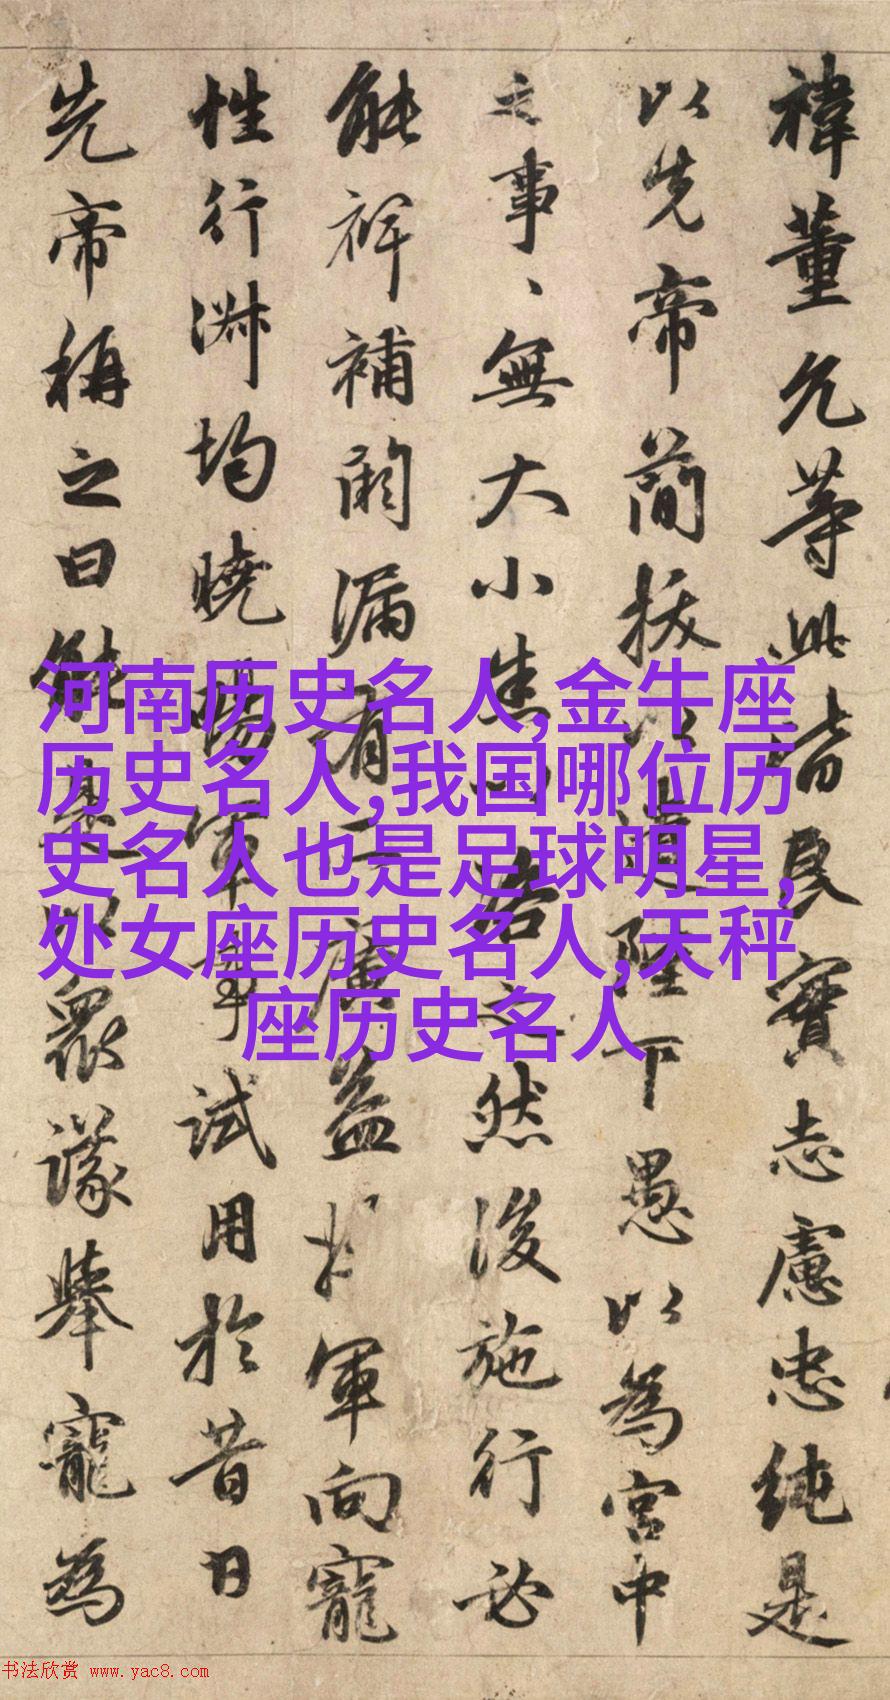 禕董允等此皆良實志慮忠純是
以先帝簡拔以遺陛下愚以為宮中
之事、無大小悉以咨之然後施行必
能裨補闕漏有所廣益 軍向寵
性行淑均曉暢軍事試用於昔日
先帝稱之曰能是以眾議舉寵為
河南历史名人,金牛座
历史名人,我国哪位历
史名人也是足球明星,
处女座历史名人,天秤
座历史名人
书法欣赏 www.yac8.com